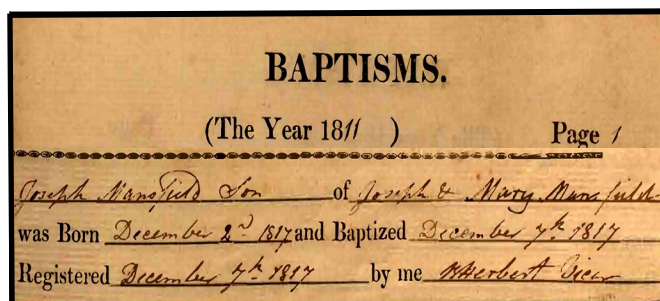 BAPTISMS.
(The Year 1811 ) Page 1
Joseph Mansfield Son of Joseph & Mary Mansfield
was Born December 2d 1817 and Baptized December 7th 1817
Registered December 7th 1817 by me Herbert Vicar